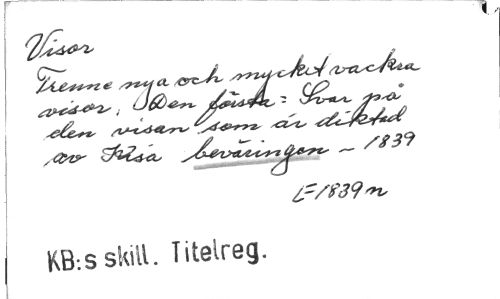 Visor
Trenne nya och mycket vackra
visor. Den första: Svar på
den visan som är diktad
av Kisa beväringen – 1839
E 1839 n
KB:s skill. Titelreg.